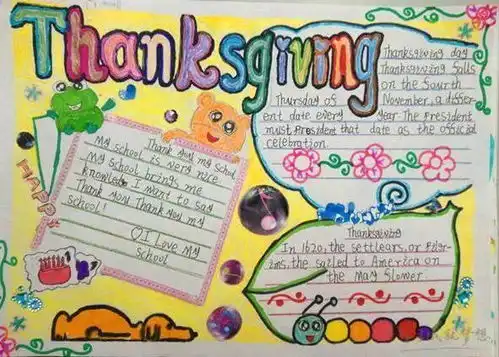 Thanksgiving
Thanksgiving day
Thanksgiving falls
on the Sourth
Thursday of November, a differ-
ent date every year The President
must President that date as the official
celebration.
HAPPY
Thank you my school
My school is very nice
My school brings me
knowledge I want to say
Thank you Thank you my
school!
I Love My
School
Thanksgiving
In 1620, the settlears, or Pilgr-
ims, the sailed to America on
the May flower.